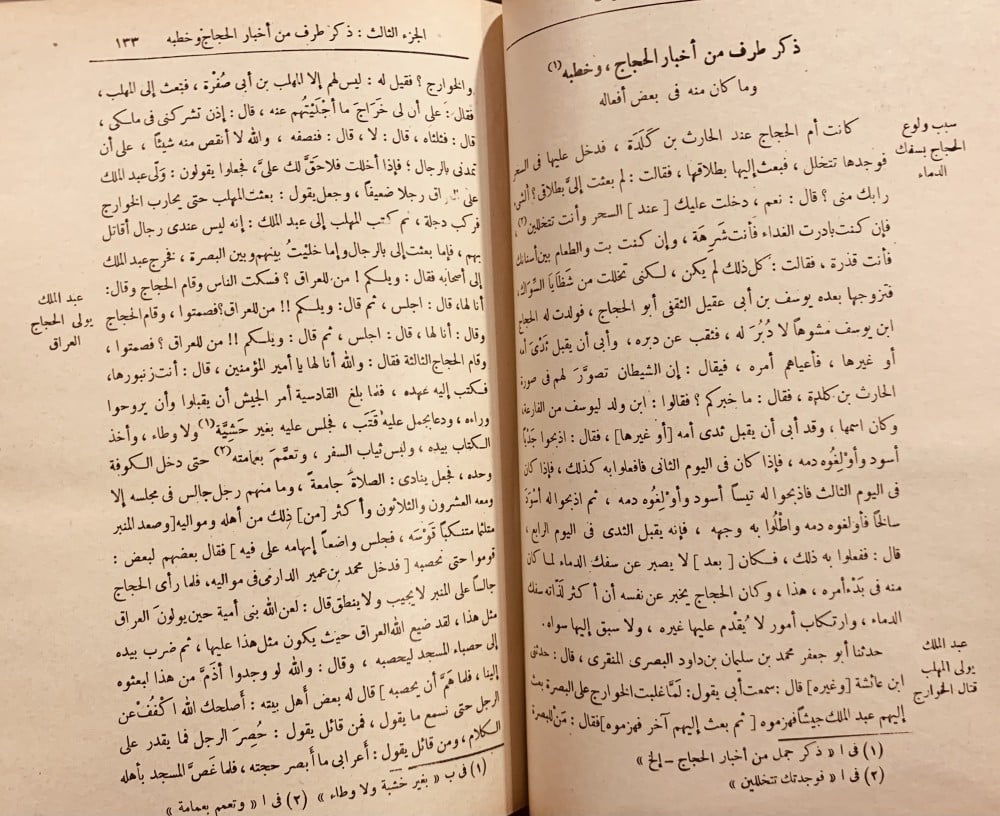 ذكر طرف من أخبار الحجاج ، وخطبه (١)
وما كان منه فى بعض أفعاله
سبب ولوع
الحجاج بسفك
الدماء
كانت أم الحجاج عند الحارث بن كَلَدَة ، فدخل عليها فى السحر
فوجدها تتخلل ، فبعث إليها بطلاقها ، فقالت : لم بعثت إلىَّ بطلاقى ؟ ألشىء
رابك منى ؟ قال : نعم ، دخلت عليك [ عند ] السحر وأنت تتخللين (٢) ،
فإن كنت بادرت الغداء فأنت شَرِهَة ، وإن كنت بت والطعام بين أسنانك
فأنت قذرة ، فقالت : كل ذلك لم يكن ، لكنى تخللت من شَظَايَا السِّوَاك ،
فتزوجها بعده يوسف بن أبى عقيل الثقفى أبو الحجاج ، فولدت له الحجاج
ابن يوسف مشوها لا دُبُرَ له ، فثقب عن دبره ، وأبى أن يقبل ثَدْىَ أمه
أو غيرها ، فأعياهم أمره ، فيقال : إن الشيطان تصوَّرَ لهم فى صورة
الحارث بن كلدة ، فقال : ما خبركم ؟ فقالوا : ابن ولد ليوسف من الفارعة ،
وكان اسمها ، وقد أبى أن يقبل ثدى أمه [أو غيرها] ، فقال : اذبحوا جَدْيًا
أسود وأوْلِغُوه دمه ، فإذا كان فى اليوم الثانى فافعلوا به كذلك ، فإذا كان
فى اليوم الثالث فاذبحوا له تيساً أسود وأوْلِغُوه دمه ، ثم اذبحوا له أسْوَدَ
سالخًا فأولغوه دمه واطْلُوا به وجهه ، فإنه يقبل الثدى فى اليوم الرابع ،
قال : ففعلوا به ذلك ، فكان [ بعد ] لا يصبر عن سفك الدماء لما كان
منه فى بَدْءِ أمره ، هذا ، وكان الحجاج يخبر عن نفسه أن أكثر لذَّاته سفك
الدماء ، وارتكاب أمور لا يُقْدم عليها غيره ، ولا سبق إليها سواه .
عبد الملك
يولى المهلب
قتال الخوارج
حدثنا أبو جعفر محمد بن سلمان بن داود البصرى المنقرى ، قال : حدثنى
ابن عائشة [وغيره] قال : سمعت أبى يقول : لمَّا غلبت الخوارج على البصرة بعث
إليهم عبد الملك جيشاً فهزموه [ ثم بعث إليهم آخر فهزموه] فقال : مَنْ للبصرة
(١) فى ا « ذكر جمل من أخبار الحجاج – إلخ »
(٢) فى ا « فوجدتك تتخللين »
الجزء الثالث : ذكر طرف من أخبار الحجاج وخطبه ١٣٣
والخوارج ؟ فقيل له : ليس لهم إلا المهلب بن أبى صُفْرة ، فبعث إلى المهلب ،
فقال : على أن لى خَرَاجَ ما أجْلَيْتُهم عنه ، قال : إذن تشركنى فى ملكى ،
قال : فثلثاه ، قال : لا ، قال : فنصفه ، والله لا أنقص منه شيئاً ، على أن
تمدنى بالرجال ؛ فإذا أخللت فلا حَقَّ لك علىَّ ، فجعلوا يقولون : وَلَّى عبد الملك
على العراق رجلا ضعيفاً ، وجعل يقول : بعثت المهلب حتى يحارب الخوارج
فركب دجلة ، ثم كتب المهلب إلى عبد الملك : إنه ليس عندى رجال أقاتل
بهم ، فإما بعثت إلى بالرجال وإما خليْتُ بينهم وبين البصرة ، فخرج عبد الملك
إلى أصحابه فقال : ويلكم ! من للعراق ؟ فسكت الناس وقام الحجاج وقال :
عبد الملك
يولى الحجاج
العراق
أنا لها ، قال : اجلس ، ثم قال : ويلكم !! من للعراق؟ فصمتوا ، وقام الحجاج
وقال : أنا لها ، قال : اجلس ، ثم قال : ويلكم !! من للعراق ؟ فصمتوا ،
وقام الحجاج الثالثة فقال : والله أنا لها يا أمير المؤمنين ، قال : أنت زنبورها ،
فكتب إليه عهده ، فلما بلغ القادسية أمر الجيش أن يقبلوا وأن يروحوا
وراءه ، ودعا بجمل عليه قَتَب ، فجلس عليه بغير حَشِيَّة (١) ولا وطاء ، وأخذ
الكتاب بيده ، ولبس ثياب السفر ، وتعمَّمَ بعمامته (٢) حتى دخل الكوفة
وحده ، فجعل ينادى : الصلاةَ جامعة ً ، وما منهم رجل جالس فى مجلسه إلا
ومعه العشرون والثلاثون وأكثر [من] ذلك من أهله ومواليه [وصعد المنبر
متلثما متنكباً قَوْسَه ، فجلس واضعاً إبهامه على فيه ] فقال بعضهم لبعض :
قوموا حتى نحصبه [ فدخل محمد بن عمير الدارمى فى مواليه ، فلما رأى الحجاج
جالساً على المنبر لا يجيب ولا ينطق قال : لعن الله بنى أمية حين يولون العراق
مثل هذا ، لقد ضيع الله العراق حيث يكون مثل هذا عليها ، ثم ضرب بيده
إلى حصباء المسجد ليحصبه ، وقال : والله لو وجدوا أذَمَّ من هذا لبعثوه
إلينا ، فلما هَمَّ أن يحصبه ] قال له بعض أهل بيته : أصلحك الله اكْفُفْ عن
الرجل حتى نسمع ما يقول ، فمن قائل يقول : حُصِرَ الرجل فما يقدر على
الكلام ، ومن قائل يقول : أعرابى ما أبصر حجته ، فلما غَصَّ المسجد بأهله
(١) فى ب « بغير خشبة ولا وطاء » (٢) فى ا « وتعمم بعمامة »